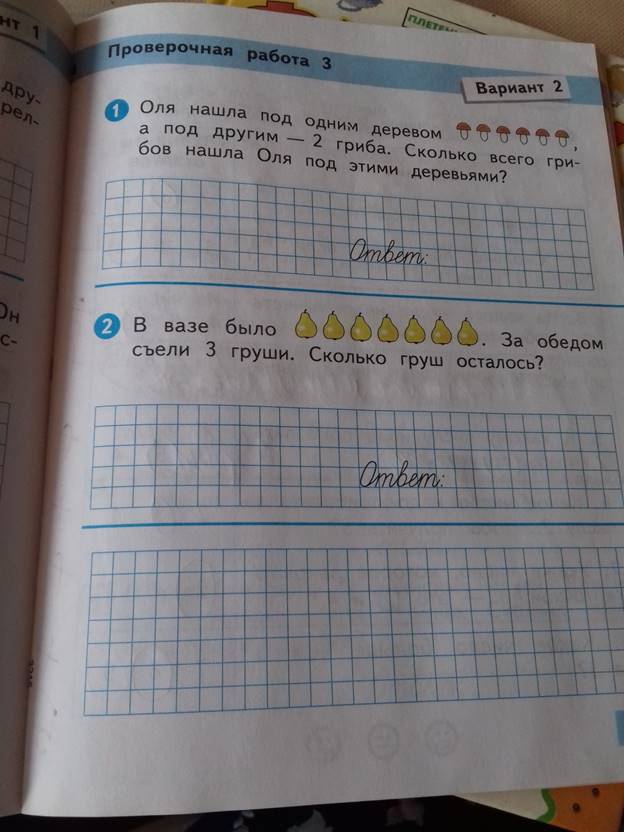 нт 1
ПЛЕТЕ
Проверочная работа 3
Вариант 2
дру-
рел-
1 Оля нашла под одним деревом ,
а под другим — 2 гриба. Сколько всего гри-
бов нашла Оля под этими деревьями?
Ответ:
Он
с-
2 В вазе было . За обедом
съели 3 груши. Сколько груш осталось?
Ответ: